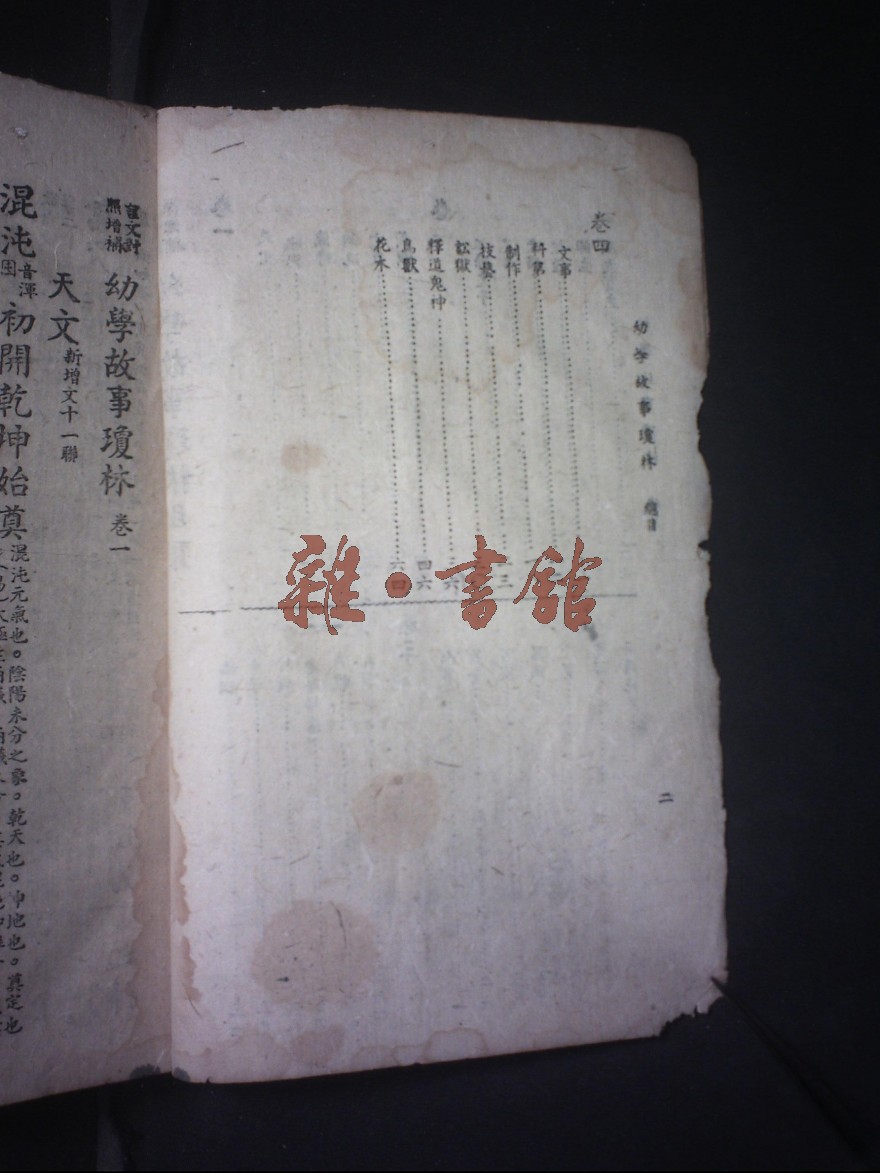 幼學故事瓊林 總目
二
卷四
文事
科第
制作
技藝
訟獄
釋道鬼神
鳥獸 四六
花木 六四
雜·書館
幼學故事瓊林 卷一
天文 新增文十一聯
混沌 音渾 初開乾坤始奠
混沌元氣也。陰陽未分之象。乾天也。坤地也。奠定也